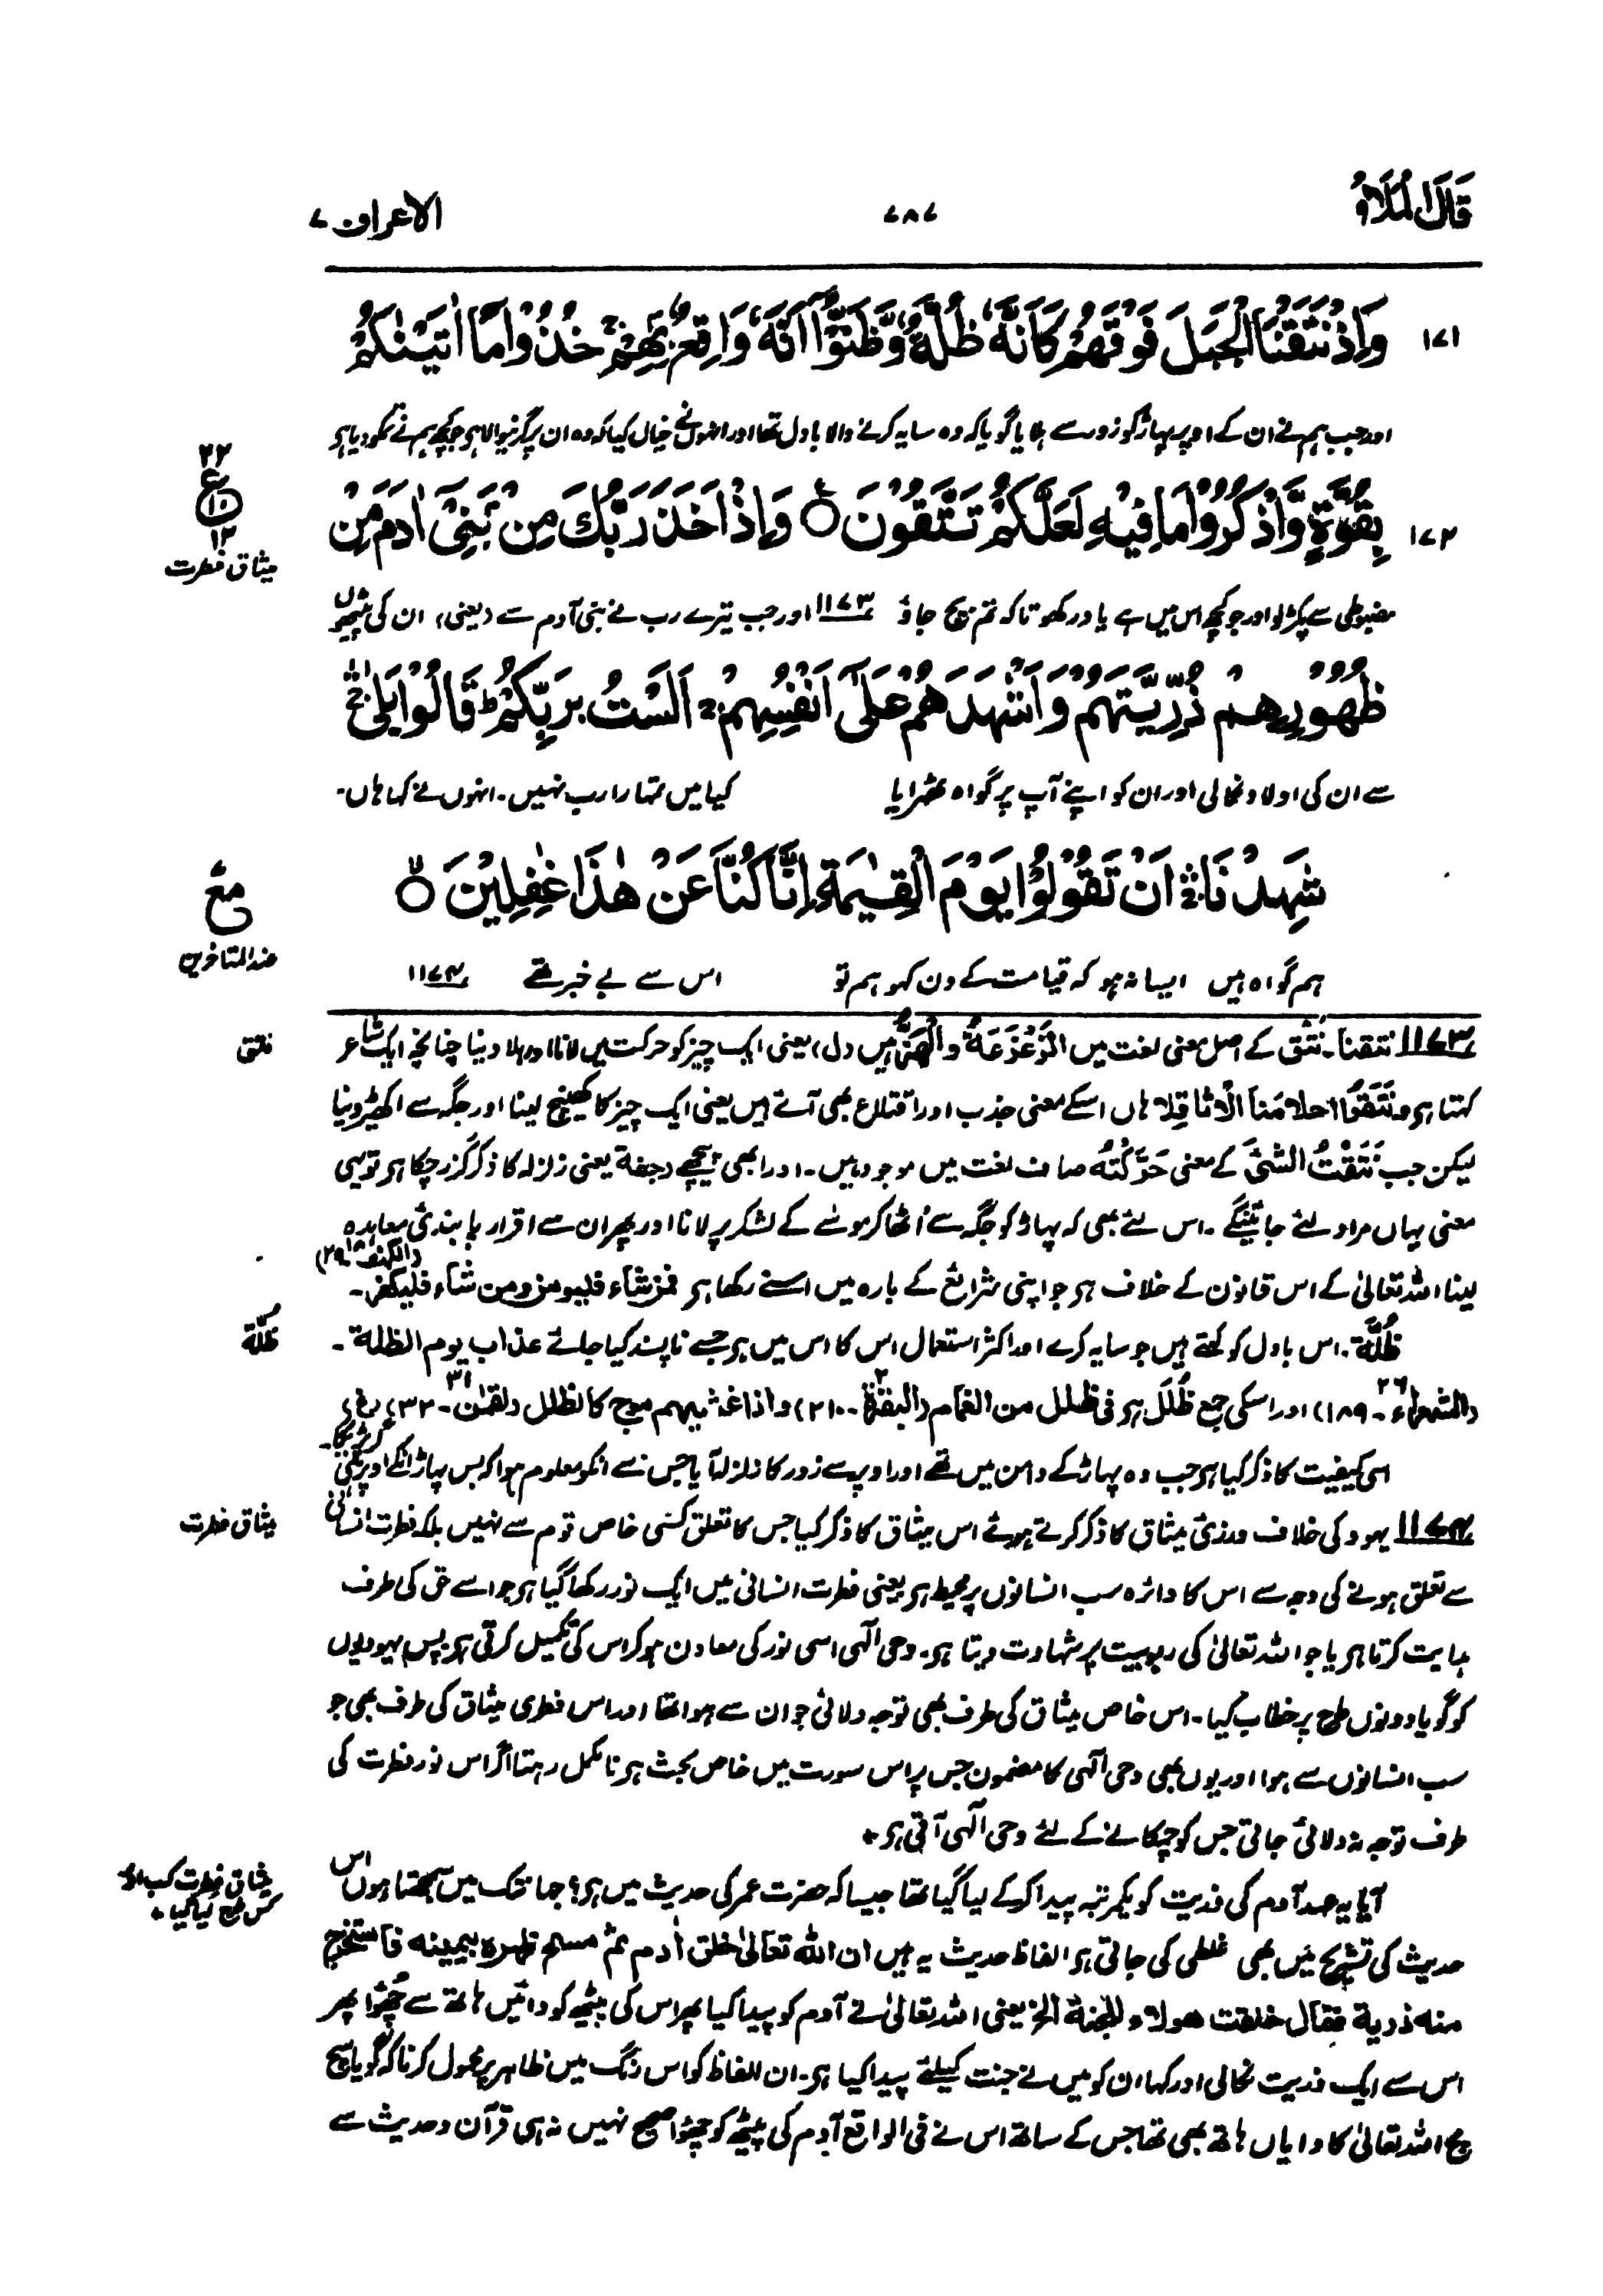 قَالَ الْمَلَأُ ۷۸۷ الاعراف ۷
۱۷۱ وَاِذْ نَتَقْنَا الْجَبَلَ فَوْقَهُمْ كَاَنَّهٗ ظُلَّةٌ وَّظَنُّوْۤا اَنَّهٗ وَاقِعٌۢ بِهِمْ ۚ خُذُوْا مَاۤ اٰتَيْنٰكُمْ
اور جب ہم نے ان کے اوپر پہاڑ کو زور سے ہلایا گویا کہ وہ سایہ کرنے والا بادل تھا اور انہوں نے خیال کیا کہ وہ ان پر گرنیوالا ہر جو کچھ ہم نے تمکو دیا ہر
۱۷۲ بِقُوَّةٍ وَّاذْكُرُوْا مَا فِيْهِ لَعَلَّكُمْ تَتَّقُوْنَ ۝ وَاِذْ اَخَذَ رَبُّكَ مِنْۢ بَنِيْۤ اٰدَمَ مِنْ
۲۲
ع
۱۰
۱۲
میثاق فطرت
مضبوطی سے پکڑو اور جو کچھ اس میں ہے یاد رکھو تاکہ تم بچ جاؤ ۱۱۷۳ اور جب تیرے رب نے بنی آدم سے (یعنی) ان کی پیٹھوں
ظُهُوْرِهِمْ ذُرِّيَّتَهُمْ وَاَشْهَدَهُمْ عَلٰۤى اَنْفُسِهِمْ ۚ اَلَسْتُ بِرَبِّكُمْ ؕ قَالُوْا بَلٰى ۛۚ
سے ان کی اولاد نکالی اور ان کو اپنے آپ پر گواہ ٹھرایا کیا میں تمہارا رب نہیں۔ انہوں نے کہا ہاں۔
شَهِدْنَا ۛۚ اَنْ تَقُوْلُوْا يَوْمَ الْقِيٰمَةِ اِنَّا كُنَّا عَنْ هٰذَا غٰفِلِيْنَ ۝ۙ
مع
عند المتاخرین
ہم گواہ ہیں ایسا نہ ہو کہ قیامت کے دن کہو ہم تو اس سے بے خبر تھے ۱۱۷۴
۱۱۷۳ نتقنا۔ نَتْق کے اصل معنی لغت میں الزَعْزَعَةُ والْهَزُّ ہیں (ل) یعنی ایک چیز کو حرکت میں لانا اور ہلا دینا چنانچہ ایک شاعر
نتق
کہتا ہر ونَتَقُوا احلامَنا الاثاقِلا ہاں اسکے معنی جذب اور اقتلاع بھی آتے ہیں یعنی ایک چیز کا کھینچ لینا اور جگہ سے اکھیڑ دینا
لیکن جب نَتَقْتُ الشیَٔ کے معنی حَرَّكْتُهُ صاف لغت میں موجود ہیں۔ اور ابھی پیچھے رجفة یعنی زلزلہ کا ذکر گزر چکا ہر تو یہی
معنی یہاں مراد لئے جائینگے۔ اس لئے بھی کہ پہاڑ کو جگہ سے اُٹھا کر موسٰے کے لشکر پر لانا اور پھر ان سے اقرار پابندیٔ معاہدہ
لینا اللہ تعالیٰ کے اس قانون کے خلاف ہر جو اپنی شرائع کے بارہ میں اسنے رکھا ہر فمن شاء فلیومن ومن شاء فلیکفر۔ (الکہف ۱۸۔۲۹)
ظُلَّة۔ اس بادل کو کہتے ہیں جو سایہ کرے اور اکثر استعمال اس کا اس میں ہر جسے ناپسند کیا جائے عذاب یوم الظلة۔
ظُلّة
(الشعراء ۲۶۔ ۱۸۹) اور اسکی جمع ظُلَل ہر فی ظلل من الغمام (البقرة ۲۔ ۲۱۰) واذا غشیهم موج کالظلل (لقمٰن ۳۱۔ ۳۲) (غ)
اسی کیفیت کا ذکر کیا ہر جب وہ پہاڑ کے دامن میں تھے اور اوپر سے زور کا زلزلہ آیا جس سے انکو معلوم ہوا کہ بس پہاڑ انکے اوپر گر پڑیگا۔
۱۱۷۴ یہود کی خلاف ورزیٔ میثاق کا ذکر کرتے ہوئے اس میثاق کا ذکر کیا جس کا تعلق کسی خاص قوم سے نہیں بلکہ فطرت انسانی
میثاق فطرت
سے تعلق ہونے کی وجہ سے اس کا دائرہ سب انسانوں پر محیط ہر یعنی فطرت انسانی میں ایک نور رکھا گیا ہر جو اسے حق کی طرف
ہدایت کرتا ہر یا جو اللہ تعالیٰ کی ربوبیت پر شہادت دیتا ہر۔ وحی الٰہی اسی نور کی معاون ہو کر اس کی تکمیل کرتی ہر پس یہودیوں
کو گویا دونوں طرح پر خطاب کیا۔ اس خاص میثاق کی طرف بھی توجہ دلائی جو ان سے ہوا تھا اور اس فطری میثاق کی طرف بھی جو
سب انسانوں سے ہوا اور یوں بھی وحی الٰہی کا مضمون جس پر اس سورت میں خاص بحث ہر نامکمل رہتا اگر اس نور فطرت کی
طرف توجہ نہ دلائی جاتی جس کو چمکانے کے لئے وحی الٰہی آتی ہر ٭
آیا یہ عہد آدم کی ذریت کو یکمرتبہ پیدا کرکے لیا گیا تھا جیسا کہ حضرت عمر کی حدیث میں ہر؟ جہانتک میں سمجھتا ہوں اس
میثاق فطرت کب اور
کس طرح لیا گیا ٭
حدیث کی تشریح میں بھی غلطی کی جاتی ہر الفاظ حدیث یہ ہیں ان الله تعالیٰ خلق اٰدم ثم مسح ظهره بیمینه فاستخرج
منه ذریة فقال خلقت هولاء للجنة الخ یعنی اللہ تعالیٰ نے آدم کو پیدا کیا پھر اس کی پیٹھ کو دائیں ہاتھ سے چھوا پھر
اس سے ایک ذریت نکالی اور کہا ان کو میں نے جنت کیلئے پیدا کیا ہر۔ ان الفاظ کو اس رنگ میں ظاہر پر محمول کرنا کہ گویا سچ
مچ اللہ تعالیٰ کا دایاں ہاتھ بھی تھا جس کے ساتھ اس نے فی الواقع آدم کی پیٹھ کو چھوا صحیح نہیں نہ ہی قرآن وحدیث سے